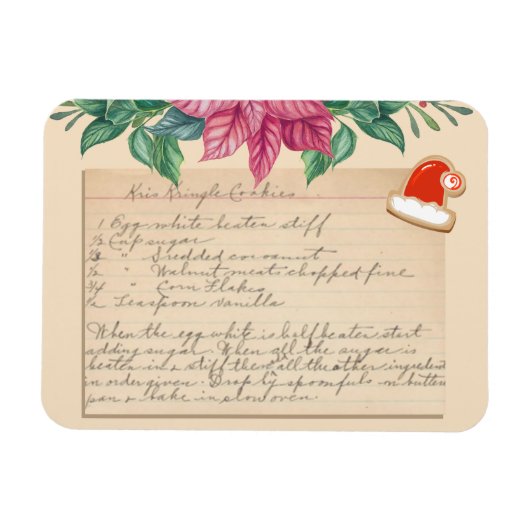 Kris Kringle Cookies
1 Egg white beaten stiff
1/2 Cup sugar
1/3 " Sredded cocoanut
1/2 " Walnut meats chopped fine
3/4 " Corn Flakes
1/2 Teaspoon vanilla
When the egg white is half beaten start
adding sugar. When all the sugar is
beaten in & stiff then all the other ingredient
in order given. Drop by spoonfuls on butter
pan & bake in slow oven.